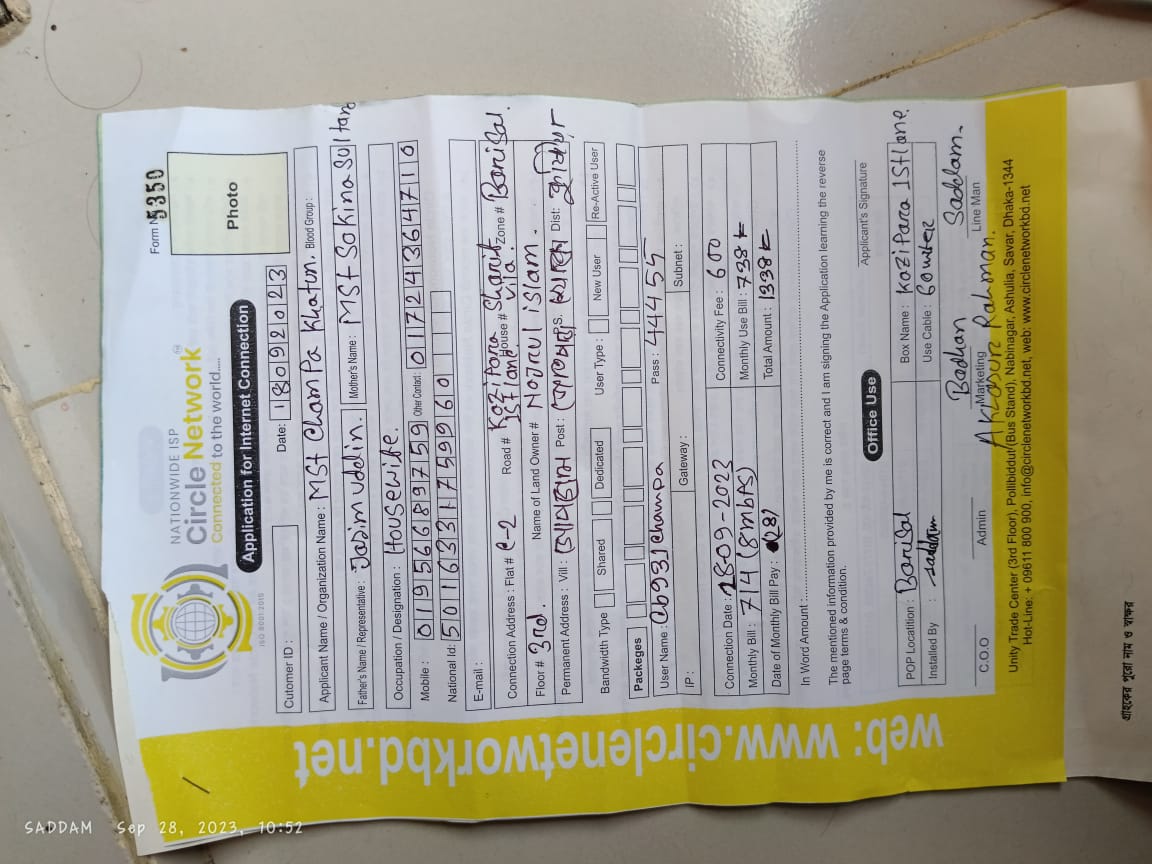 Form N 5350
NATIONWIDE ISP
Circle Network
Connected to the world.....
ISO 9001:2015
Application for Internet Connection
Photo
Cutomer ID :
Date: 18092023
Applicant Name / Organization Name : MSt Champa Khaton. Blood Group :
Father's Name / Representative : Jasim uddin. Mother's Name : MSt Sokina Sultana
Occupation / Designation : Housewife.
Mobile : 01956689759 Other Contact : 01724364710
National Id: 5016331759960
E-mail :
Connection Address : Flat # C-2 Road # Kozipara ISTland House # Sharif Vila. Zone # Borisal.
Floor # 3rd. Name of Land Owner # Nozrul islam.
Permanent Address : Vill : Post : P.S. Dist:
Bandwidth Type Shared Dedicated User Type : New User Re-Active User
Packeges
User Name : Cb931 Champa Pass : 44455
IP : Gateway : Subnet :
Connection Date : 18-09-2023 Connectivity Fee : 600
Monthly Bill : 714 (8mbPS) Monthly Use Bill : 738 ৳
Date of Monthly Bill Pay : (18) Total Amount : 1338 ৳
In Word Amount :
The mentioned information provided by me is correct and I am signing the Application learning the reverse
page terms & condition.
Applicant's Signature
Office Use
POP Locatition : Borisal Box Name : Kozipara ISTlane.
Installed By : Saddam Use Cable : 60 miter
Badhan Saddam.
C.O.O Admin Marketing Line Man
Aktabur Rahman.
Unity Trade Center (3rd Floor), Pollibiddut (Bus Stand), Nabinagar, Ashulia, Savar, Dhaka-1344
Hot-Line: + 09611 800 900, info@circlenetworkbd.net, web: www.circlenetworkbd.net
web: www.circlenetworkbd.net
গ্রাহকের পুরো নাম ও স্বাক্ষর
SADDAM Sep 28, 2023, 10:52